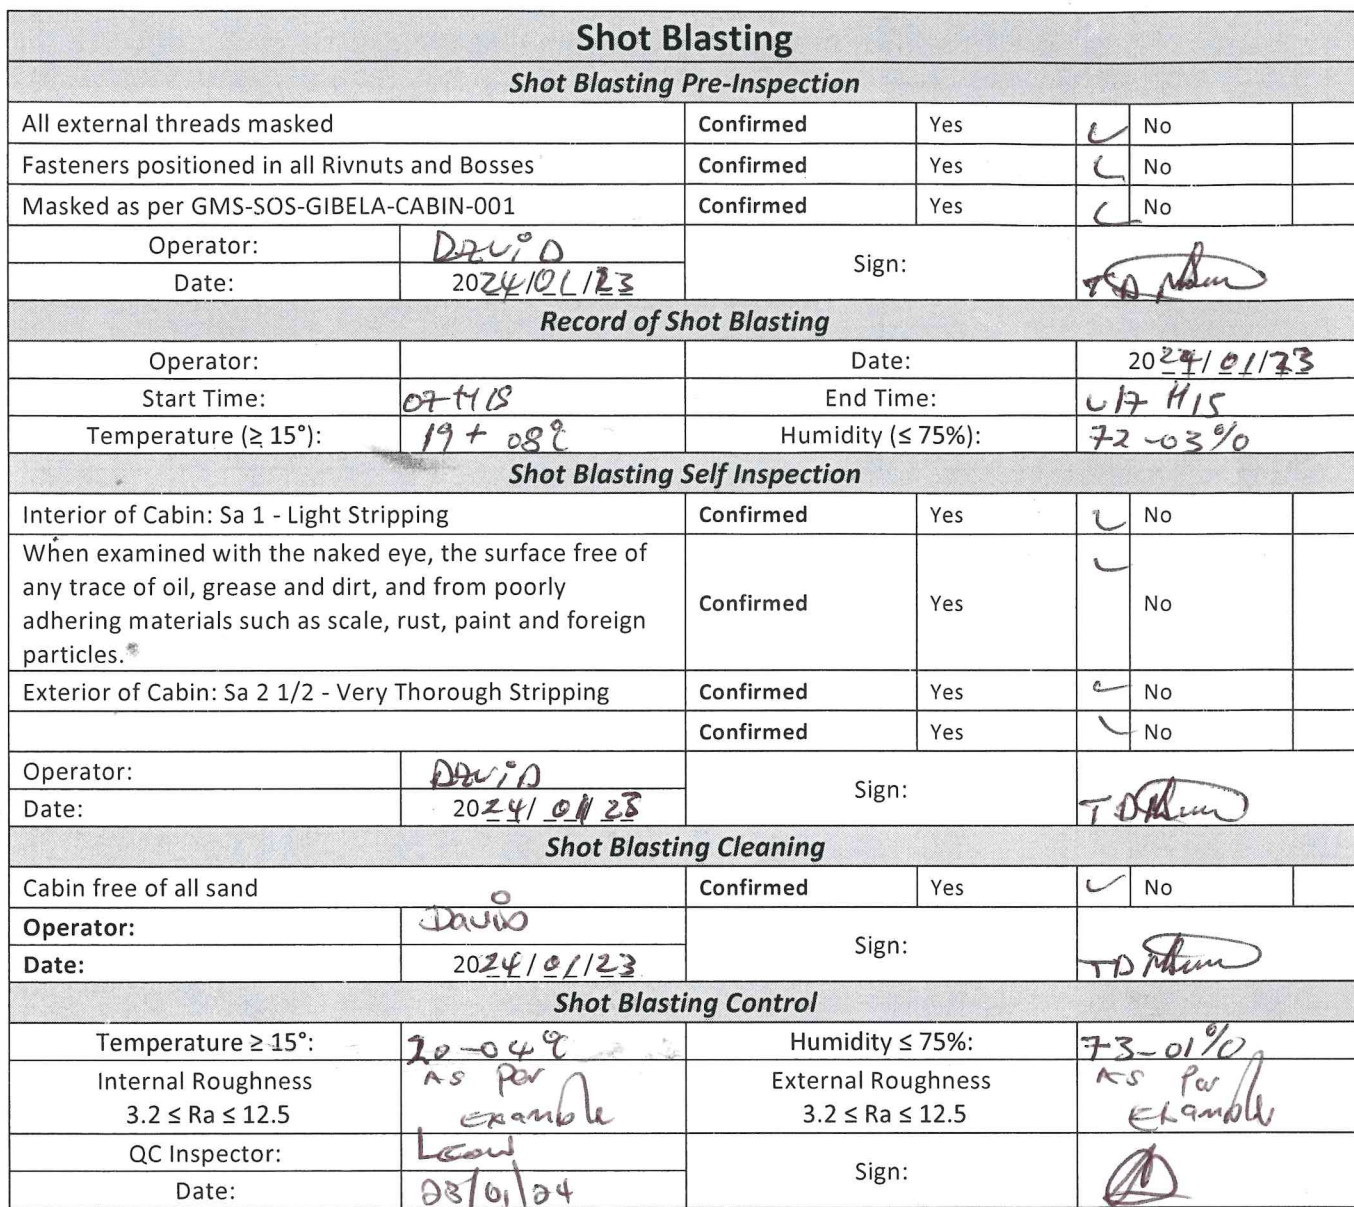 Shot Blasting
Shot Blasting Pre-Inspection
All external threads masked Confirmed Yes ✓ No
Fasteners positioned in all Rivnuts and Bosses Confirmed Yes ✓ No
Masked as per GMS-SOS-GIBELA-CABIN-001 Confirmed Yes ✓ No
Operator: DAViD Sign:
Date: 2024/01/23
Record of Shot Blasting
Operator: Date: 2024/01/23
Start Time: 07H15 End Time: H15
Temperature (≥ 15°): 19 + 08°C Humidity (≤ 75%): 72-03%
Shot Blasting Self Inspection
Interior of Cabin: Sa 1 - Light Stripping Confirmed Yes ✓ No
When examined with the naked eye, the surface free of
any trace of oil, grease and dirt, and from poorly
adhering materials such as scale, rust, paint and foreign
particles. Confirmed Yes ✓ No
Exterior of Cabin: Sa 2 1/2 - Very Thorough Stripping Confirmed Yes ✓ No
Confirmed Yes ✓ No
Operator: DAViD Sign: TD
Date: 2024/01/23
Shot Blasting Cleaning
Cabin free of all sand Confirmed Yes ✓ No
Operator: DaviD Sign: TD
Date: 2024/01/23
Shot Blasting Control
Temperature ≥ 15°: 20-04°C Humidity ≤ 75%: 73-01%
Internal Roughness As Per External Roughness As Per
3.2 ≤ Ra ≤ 12.5 Example 3.2 ≤ Ra ≤ 12.5 Example
QC Inspector: Leon Sign:
Date: 23/01/24